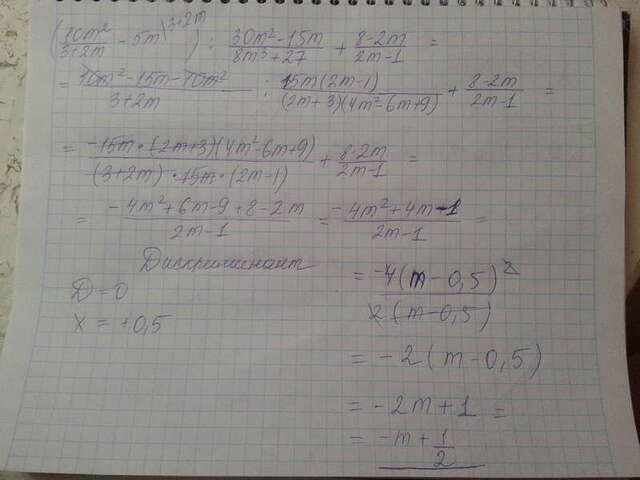 (10m²/(3+2m) - 5m\3+2m) : (30m²-15m)/(8m³+27) + (8-2m)/(2m-1) =
= (10m²-15m-10m²)/(3+2m) : 15m(2m-1)/((2m+3)(4m²-6m+9)) + (8-2m)/(2m-1) =
= (-15m·(2m+3)(4m²-6m+9))/((3+2m)·15m·(2m-1)) + (8-2m)/(2m-1) =
= (-4m²+6m-9+8-2m)/(2m-1) = (-4m²+4m-1)/(2m-1) =
Дискриминант
D=0
x = +0,5
= -4(m-0,5)²/2(m-0,5)
= -2(m-0,5)
= -2m+1 =
= -m+1/2